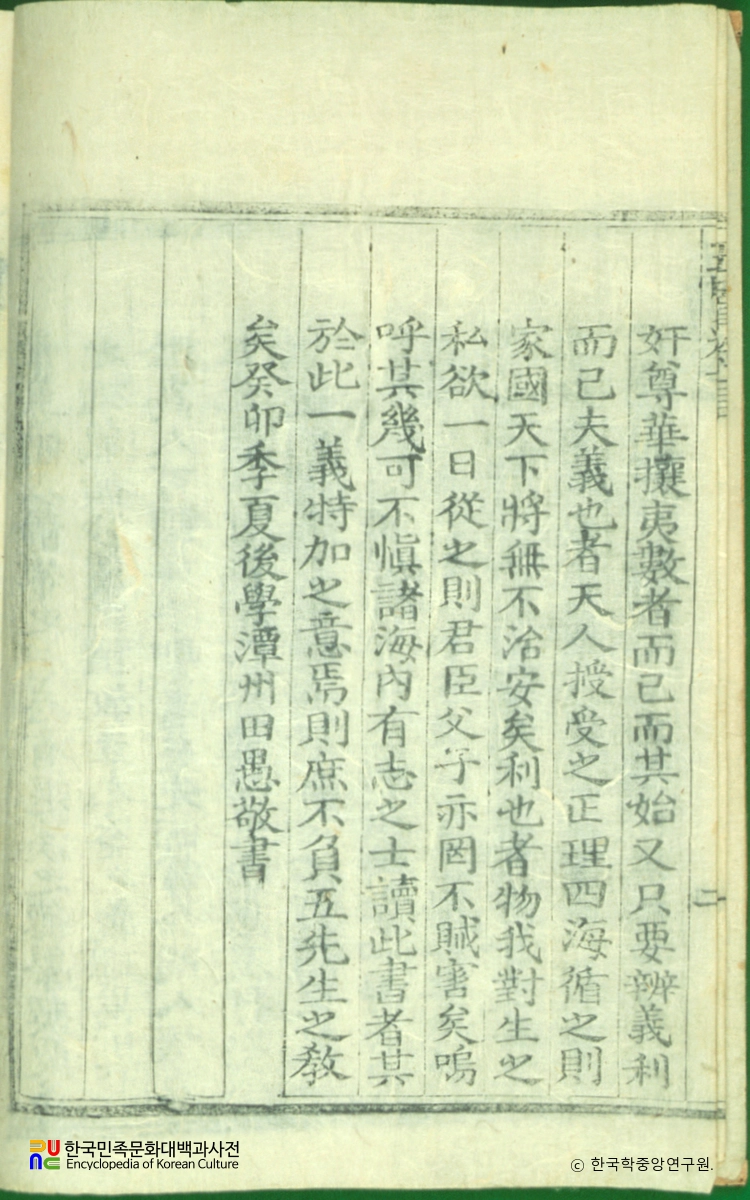 奸尊華攘夷數者而已而其始又只要辨義利
而已夫義也者天人授受之正理四海循之則
家國天下將無不治安矣利也者物我對生之
私欲一日從之則君臣父子亦罔不賊害矣嗚
呼其幾可不愼諸海內有志之士讀此書者其
於此一義特加之意焉則庶不負五先生之敎
矣癸卯季夏後學潭州田愚敬書
二
한국민족문화대백과사전
Encyclopedia of Korean Culture
ⓒ 한국학중앙연구원.